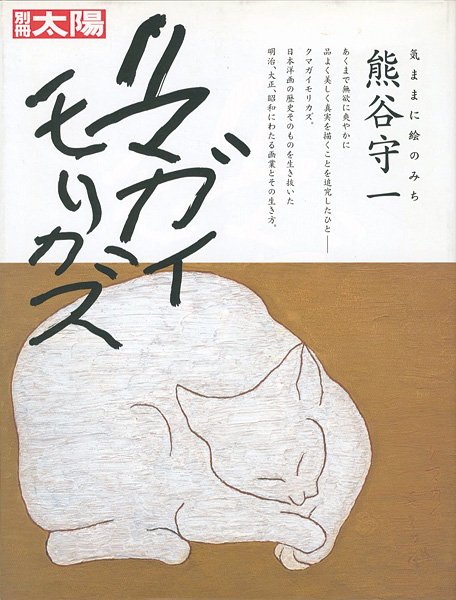 別冊
太陽
気ままに絵のみち
熊谷守一
あくまで無欲に爽やかに
品よく美しく真実を描くことを追究したひと――
クマガイモリカズ。
日本洋画の歴史そのものを生き抜いた
明治、大正、昭和にわたる画業とその生き方。
クマガイ
モリカズ